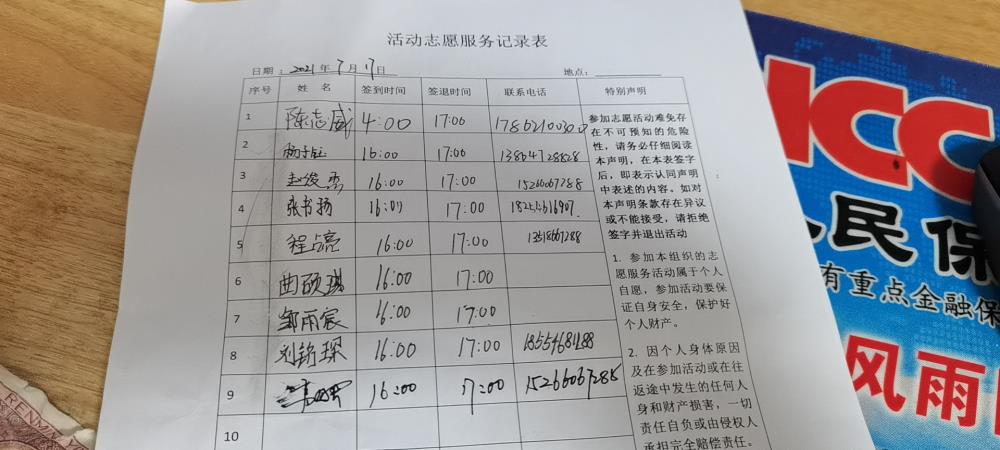 活动志愿服务记录表
日期：2021年7月17日 地点：
序号 姓 名 签到时间 签退时间 联系电话 特别声明
1 陈志威 4:00 17:00
2 16:00 17:00 13864728828
3 赵俊杰 16:00 17:00 15266067288
4 张书扬 16:00 17:00
5 程亮 16:00 17:00
6 曲硕琪 16:00 17:00
7 邹雨宸 16:00 17:00
8 刘铭琛 16:00 17:00
9 16:00 17:00 15266067288
10
参加志愿活动难免存
在不可预知的危险
性，请务必仔细阅读
本声明，在本表签字
后，即表示认同声明
中表述的内容。如对
本声明条款存在异议
或不能接受，请拒绝
签字并退出活动
1. 参加本组织的志
愿服务活动属于个人
自愿，参加活动要保
证自身安全，保护好
个人财产。
2. 因个人身体原因
及在参加活动或在往
返途中发生的任何人
身和财产损害，一切
责任自负或由侵权人
承担完全赔偿责任。
ICC
人民保
有重点金融保
风雨
RENM